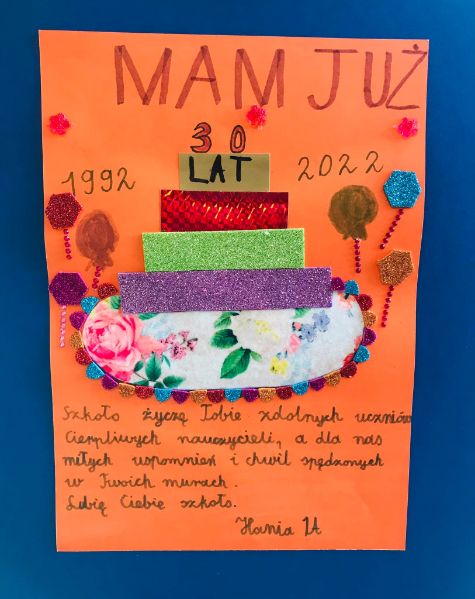 MAM JUŻ
30
LAT
1992
2022
Szkoło życzę Tobie zdolnych uczniów
Cierpliwych nauczycieli, a dla nas
miłych wspomnień i chwil spędzonych
w Twoich murach.
Lubię Ciebie szkoło.
Hania